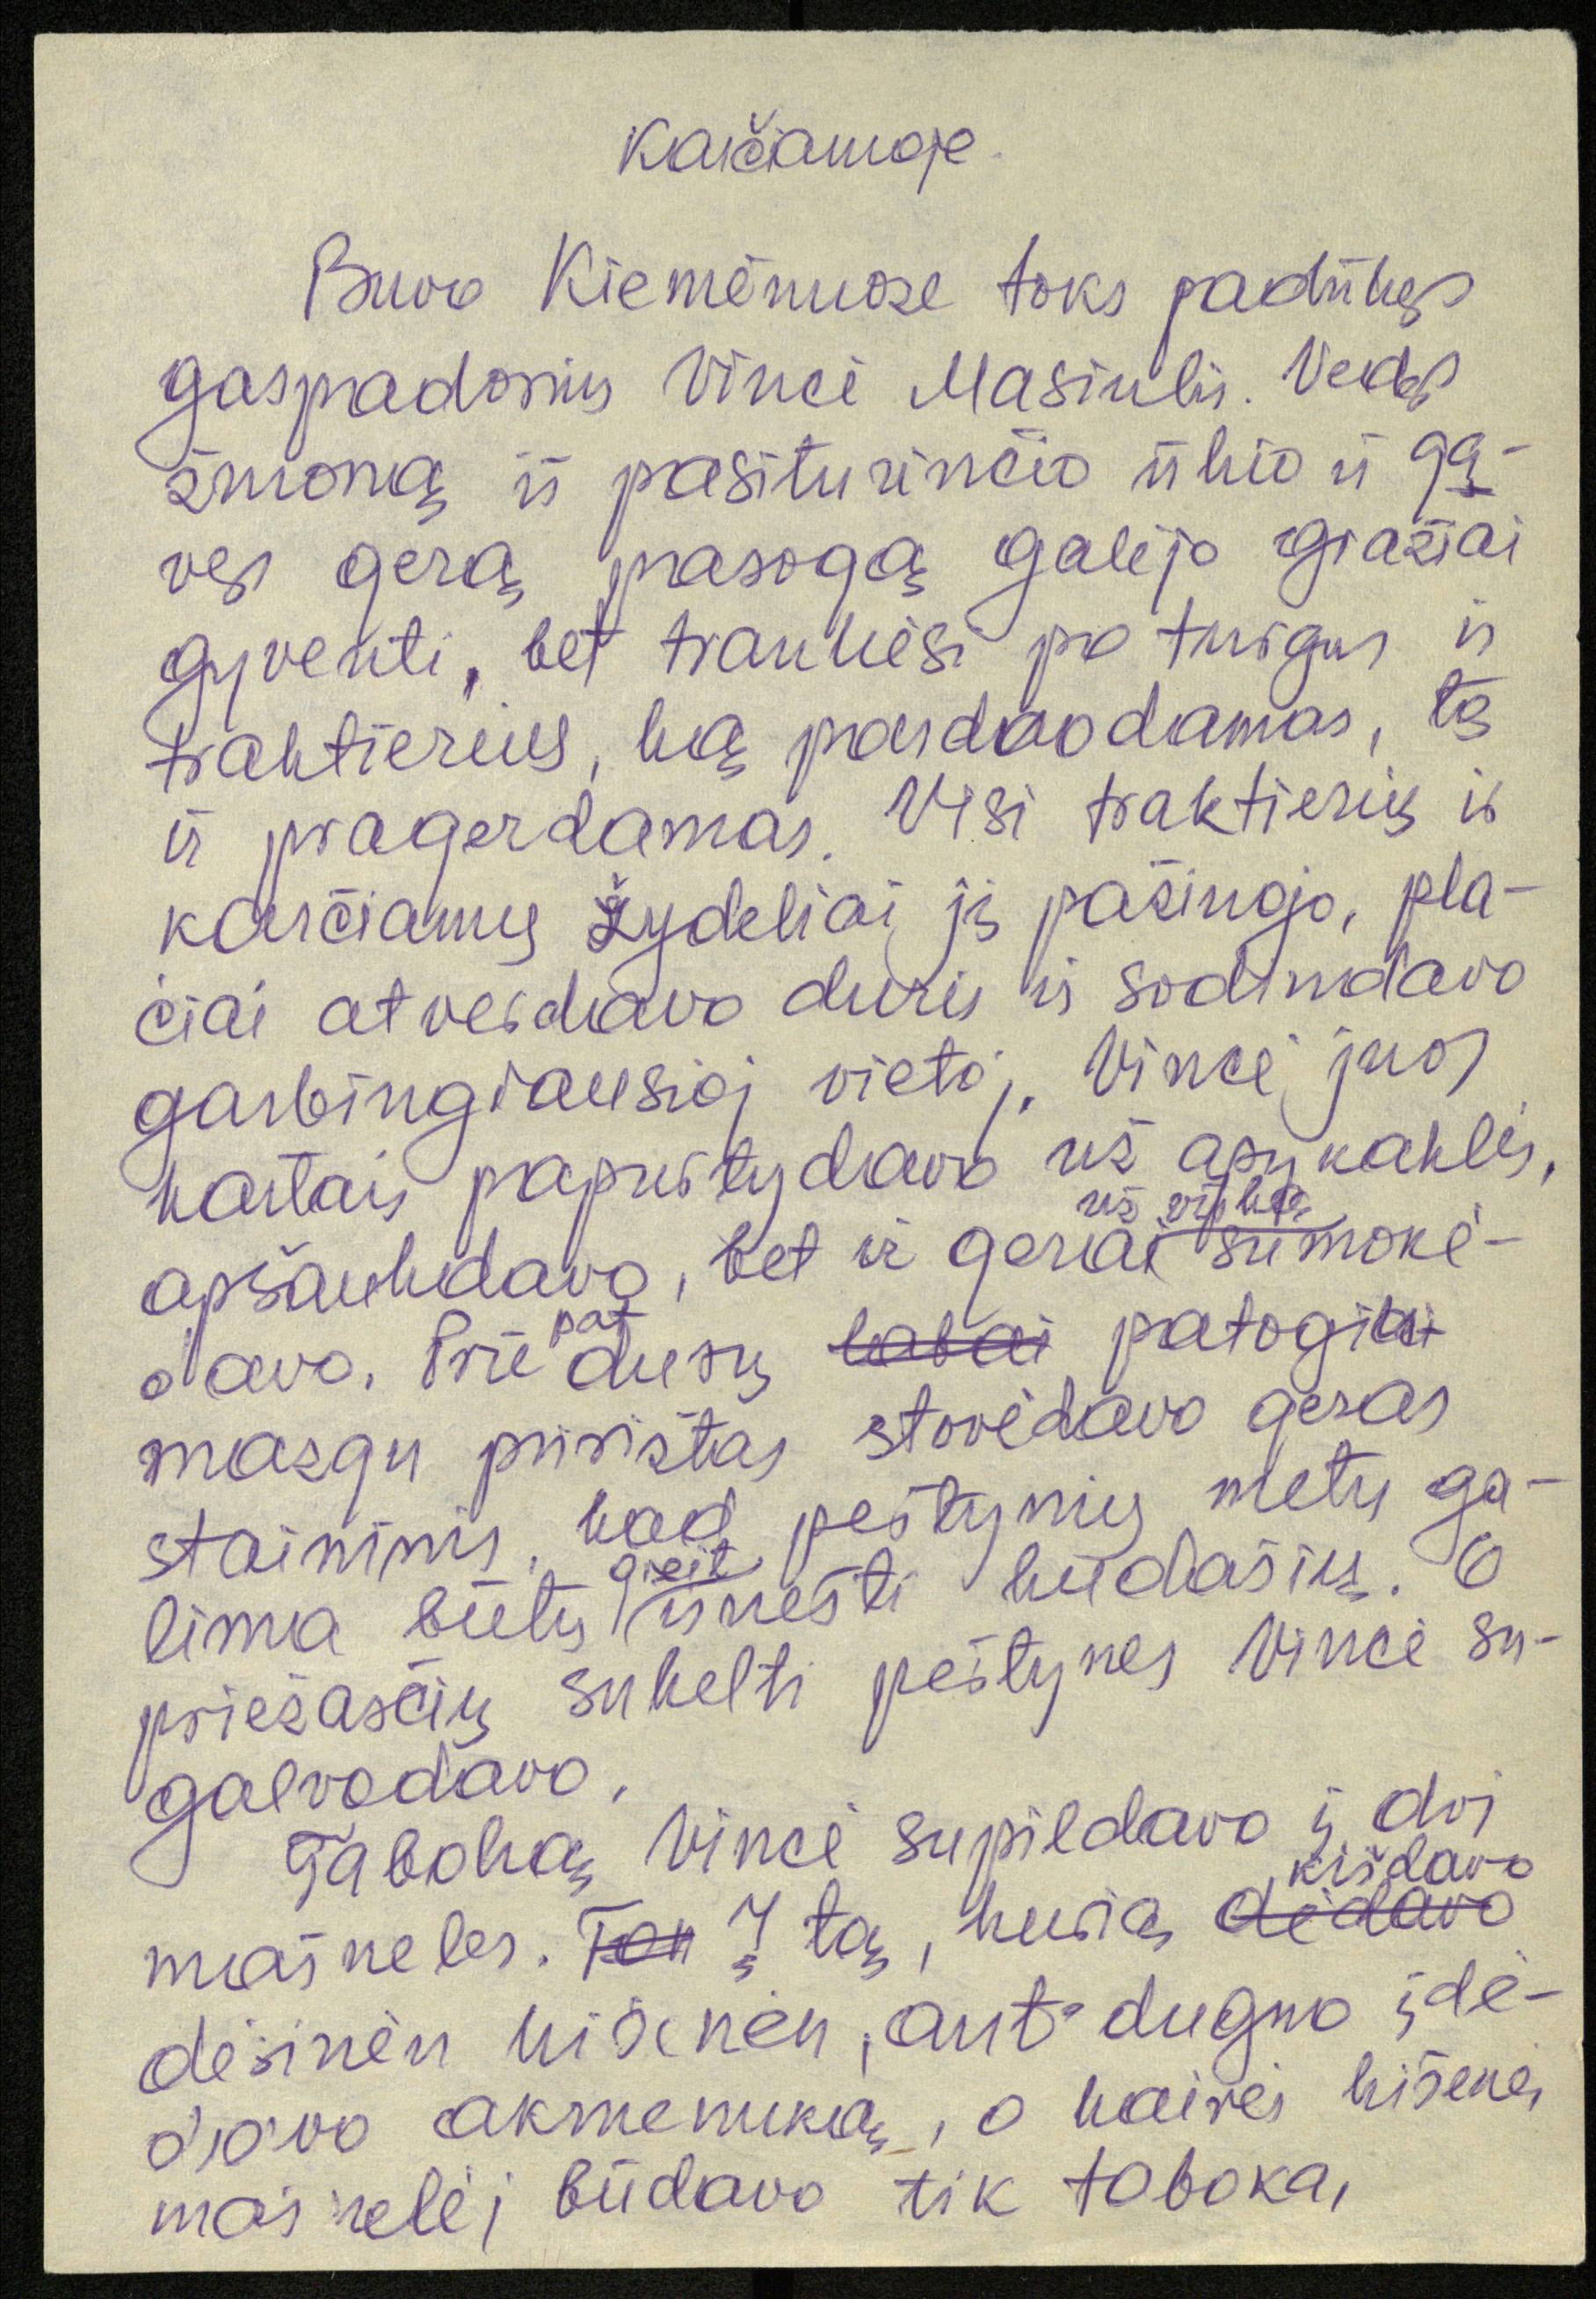 Karčiamoje
Buvo Kiemėnuose toks padūkęs
gaspadorius Vincė Masiulis. Vedęs
žmoną iš pasiturinčio ūkio ir ga-
vęs gerą pasogą galėjo gražiai
gyventi, bet traukėsi po turgus ir
traktierius, ką parduodamas, tą
ir pragerdamas. Visi traktierių ir
karčiamų žydeliai jį pažinojo, pla-
čiai atverdavo duris ir sodindavo
garbingiausioj vietoj. Vincė juos
kartais papurtydavo už apykaklės,
apšaukdavo, bet ir gerai už viską sumokė-
davo. Prie pat durų labai patogiu
mazgu pririštas stovėdavo geras
staininis, kad peštynių metu ga-
lima būtų greit išnešti kudašių. O
priežasčių sukelti peštynes Vincė su-
galvodavo.
Taboką Vincė supildavo į dvi
mašneles. Ton Į tą, kurią dėdavo kišdavo
dešinėn kišenėn, ant dugno įdė-
davo akmenuką, o kairės kišenės
mašnelėj būdavo tik taboka,